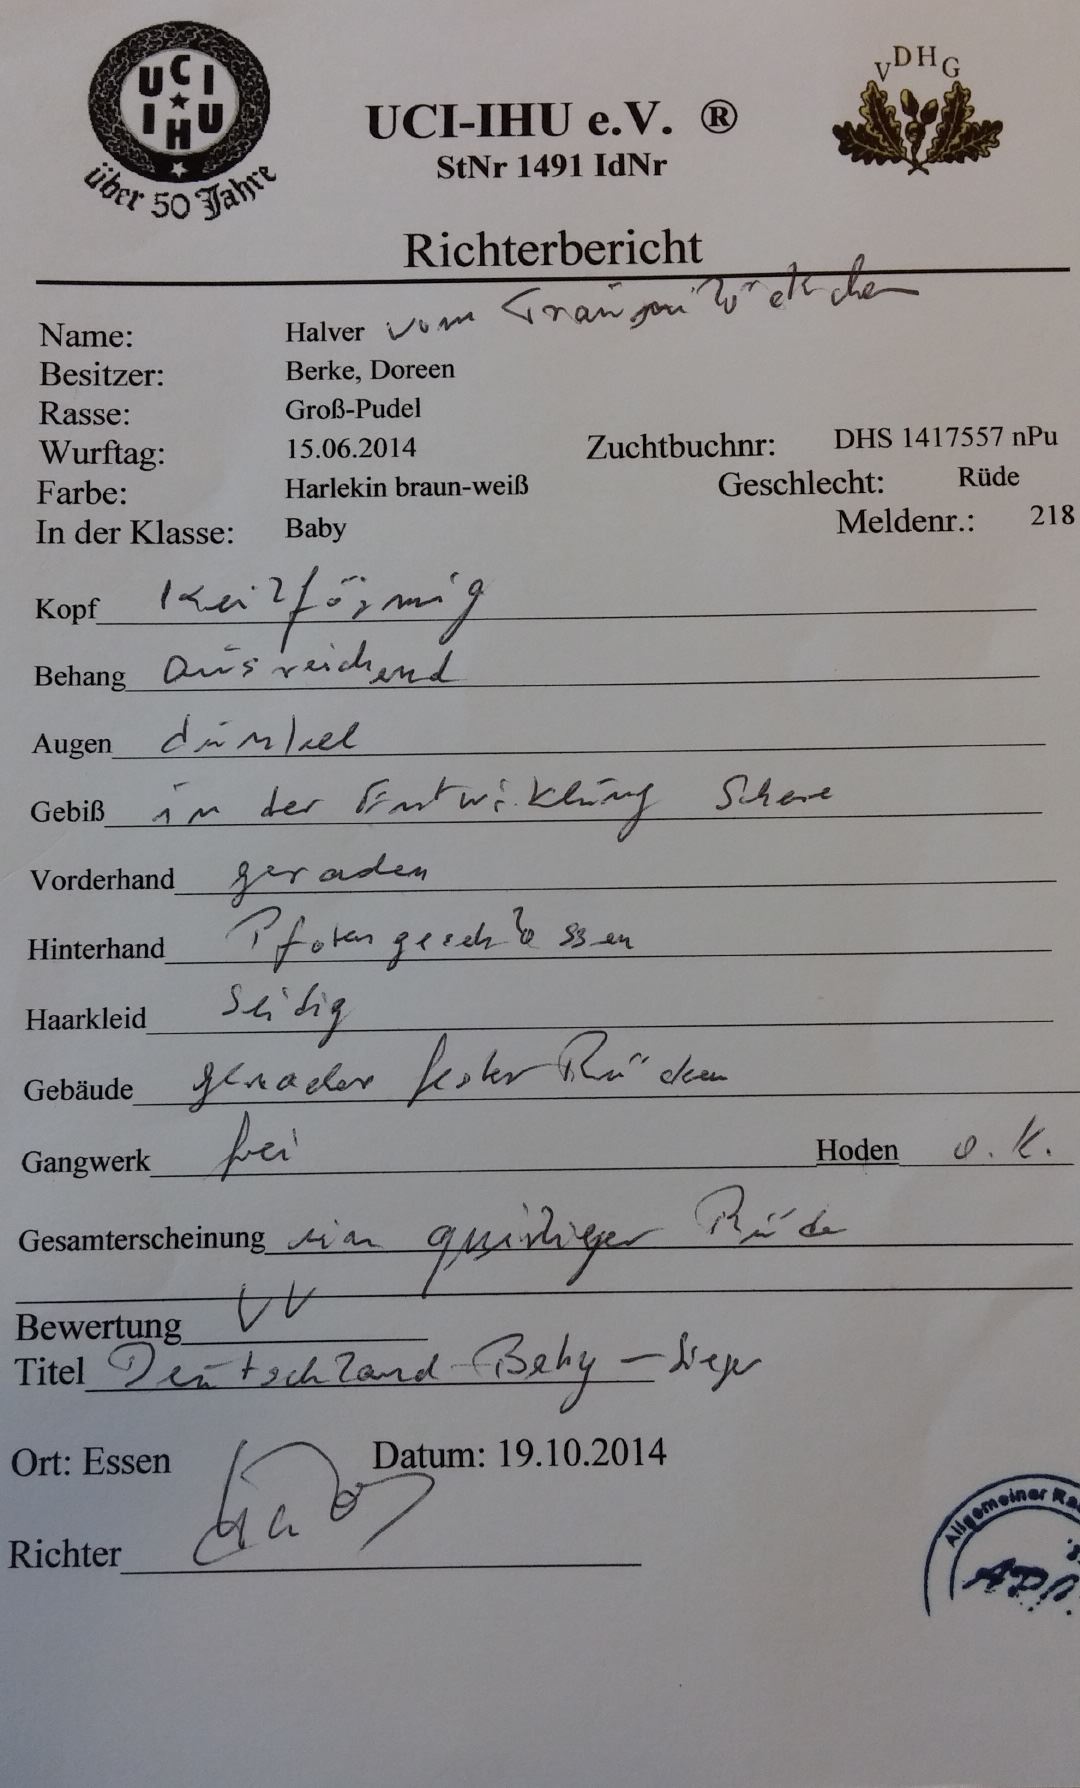 UCI
IHU
über 50 Jahre
VDHG
UCI-IHU e.V. ®
StNr 1491 IdNr
Richterbericht
Name: Halver vom
Besitzer: Berke, Doreen
Rasse: Groß-Pudel
Wurftag: 15.06.2014 Zuchtbuchnr: DHS 1417557 nPu
Farbe: Harlekin braun-weiß Geschlecht: Rüde
In der Klasse: Baby Meldenr.: 218
Kopf Keilförmig
Behang ausreichend
Augen dunkel
Gebiß in der Entwicklung Schere
Vorderhand geraden
Hinterhand Pfoten geschlossen
Haarkleid Seidig
Gebäude gerader fester Rücken
Gangwerk frei Hoden o.k.
Gesamterscheinung ein Rüde
Bewertung VV
Titel Deutschland-Baby-Sieger
Ort: Essen Datum: 19.10.2014
Richter
Allgemeiner